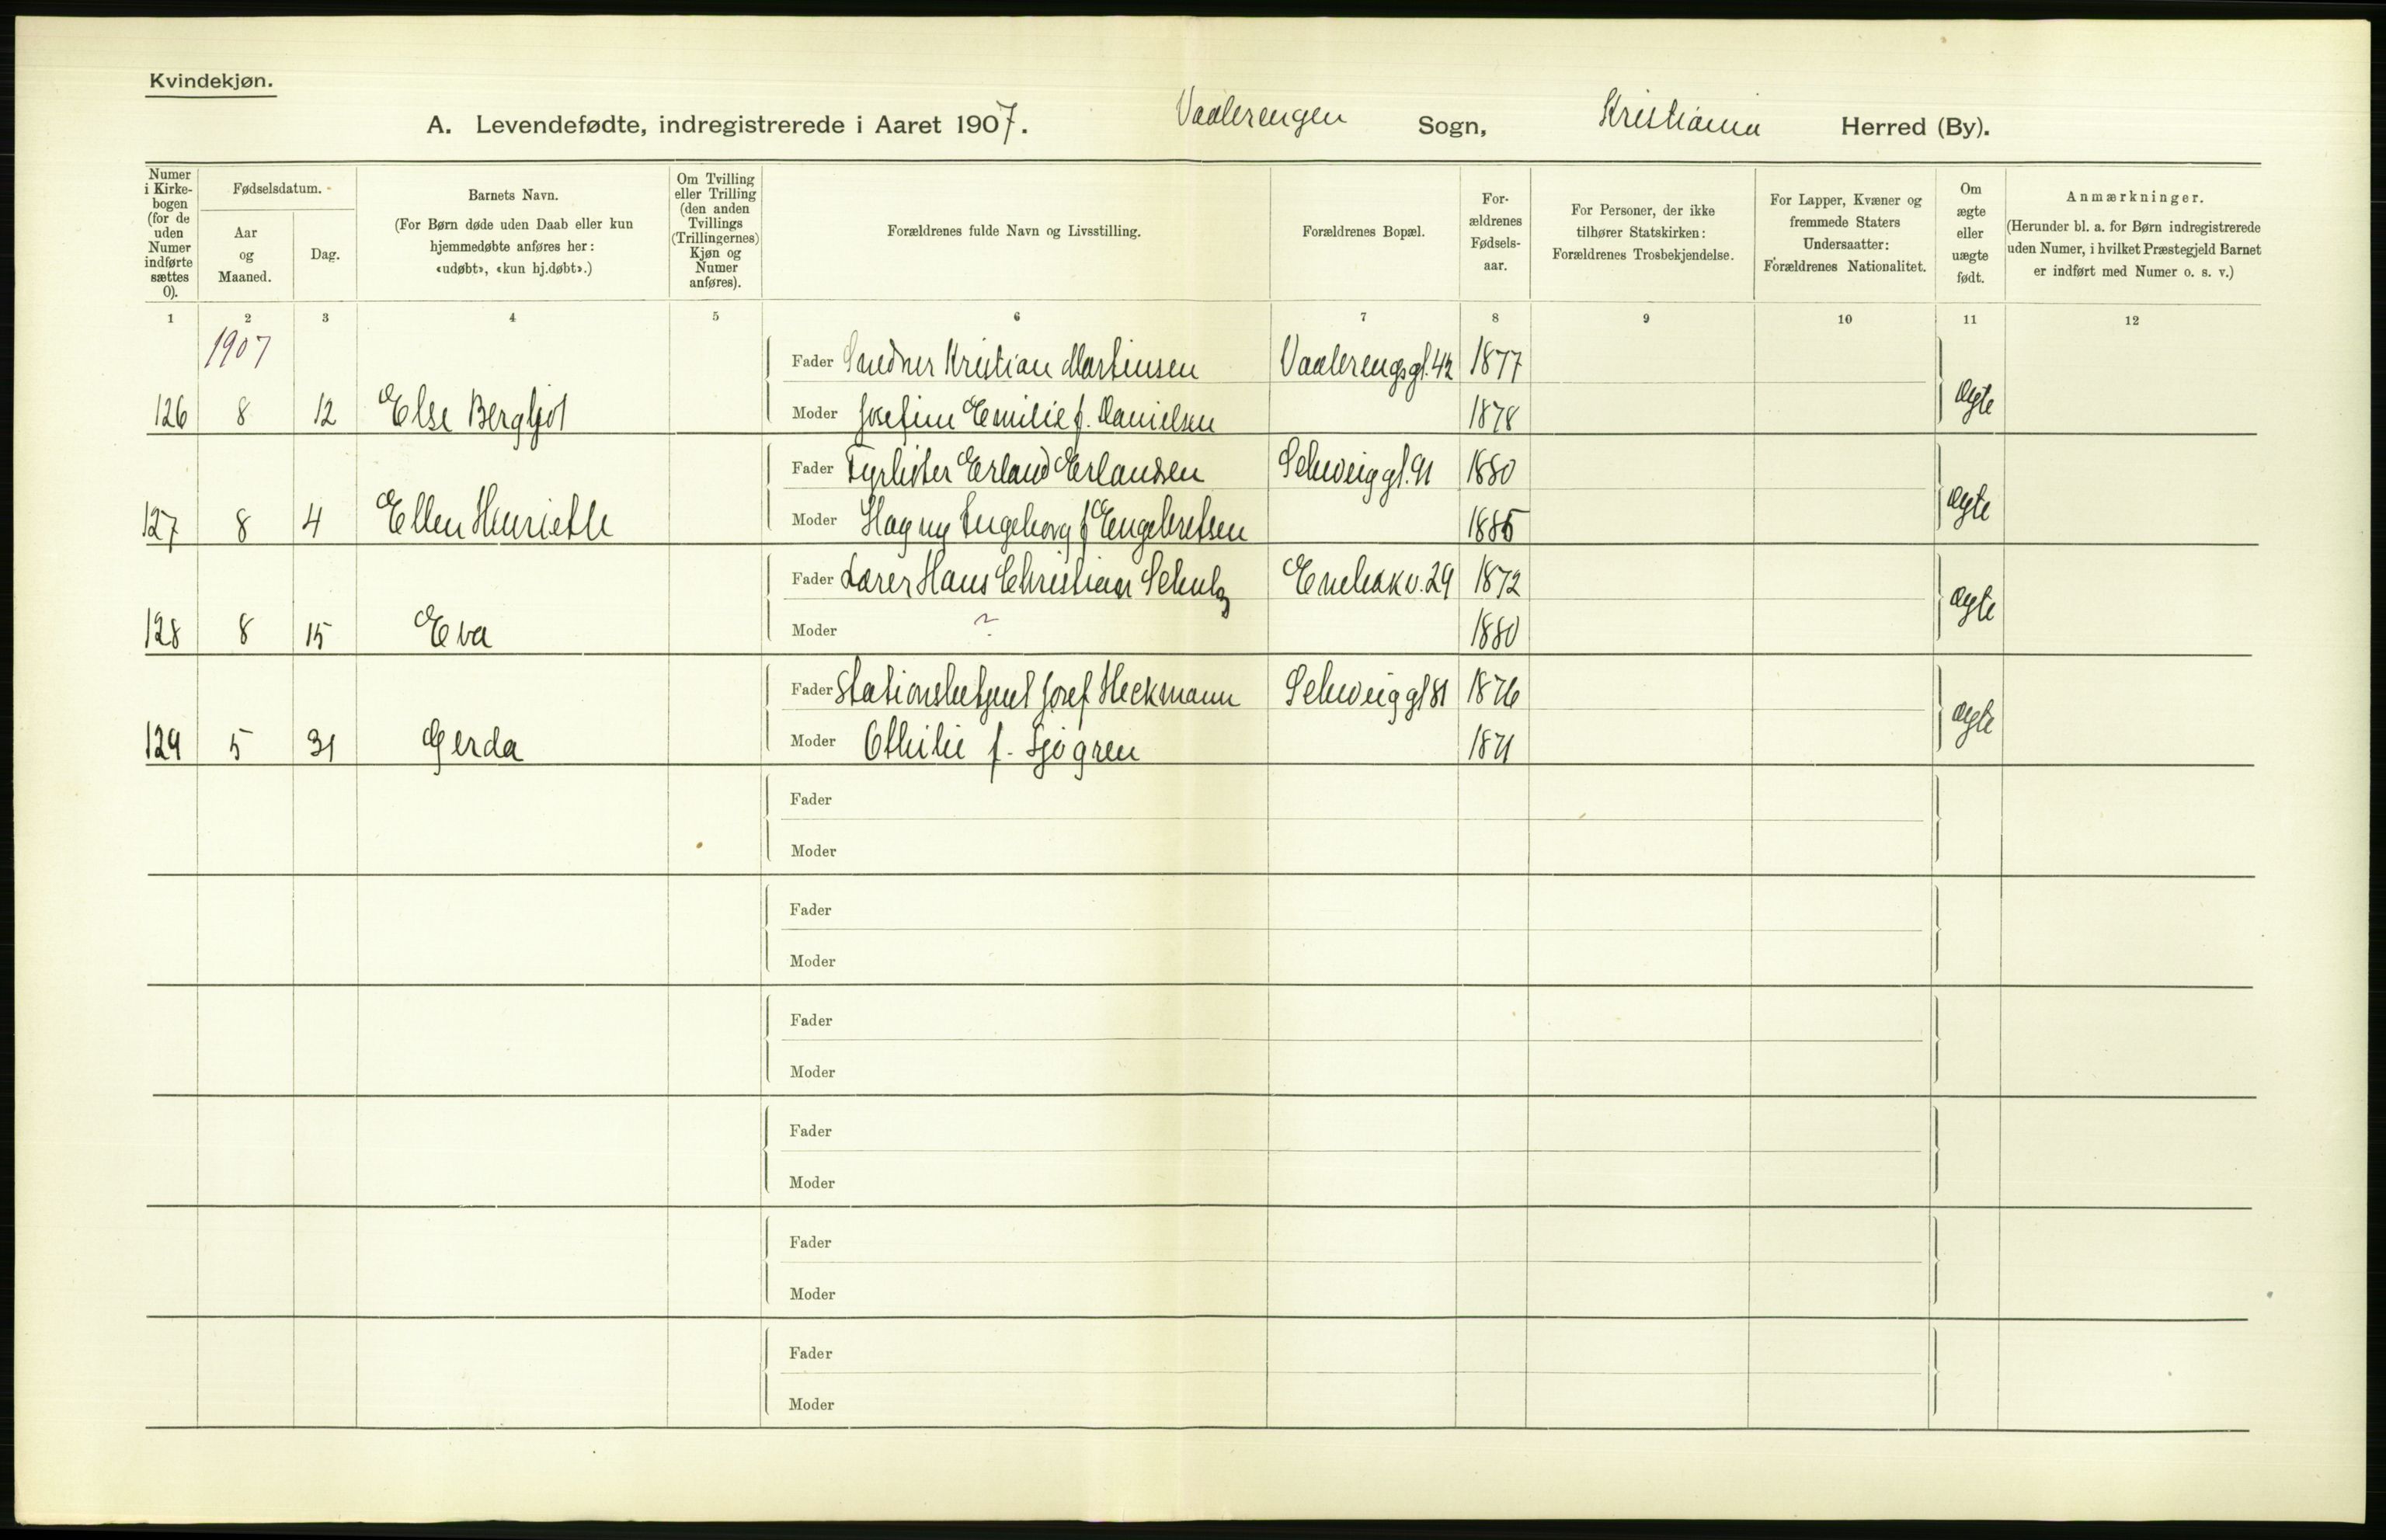 Kvindekjøn.
A. Levendefødte, indregistrerede i Aaret 1907. Vaalerengen Sogn, Kristiania Herred (By).
Numer i Kirkebogen (for de uden Numer indførte sættes 0).
Fødselsdatum.
Aar og Maaned.
Dag.
Barnets Navn.
(For Børn døde uden Daab eller kun hjemmedøbte anføres her: «udøbt», «kun hj.døbt».)
Om Tvilling eller Trilling (den anden Tvillings (Trillingernes) Kjøn og Numer anføres).
Forældrenes fulde Navn og Livsstilling.
Forældrenes Bopæl.
Forældrenes Fødselsaar.
For Personer, der ikke tilhører Statskirken: Forældrenes Trosbekjendelse.
For Lapper, Kvæner og fremmede Staters Undersaatter: Forældrenes Nationalitet.
Om ægte eller uægte født.
Anmærkninger.
(Herunder bl. a. for Børn indregistrerede uden Numer, i hvilket Præstegjeld Barnet er indført med Numer o. s. v.)
1 2 3 4 5 6 7 8 9 10 11 12
1907
Fader Snedker Kristian Martinsen Vaalerengsgt. 42 1877
126 8 12 Else Bergljot Moder Josefine Emilie f. Danielsen 1878 ægte
Fader Fyrbøter Erland Erlandsen Schweiggt. 91 1880
127 8 4 Ellen Henriette Moder Hagny Ingeborg f Engebretsen 1885 ægte
Fader Lærer Hans Christian Schulz Enebakv. 29 1872
128 8 15 Eva Moder ? 1880 ægte
Fader Stationsbetjent Josef Heckmann Schweiggt 81 1876
129 5 31 Gerda Moder Othilie f. Sjøgren 1871 ægte
Fader
Moder
Fader
Moder
Fader
Moder
Fader
Moder
Fader
Moder
Fader
Moder